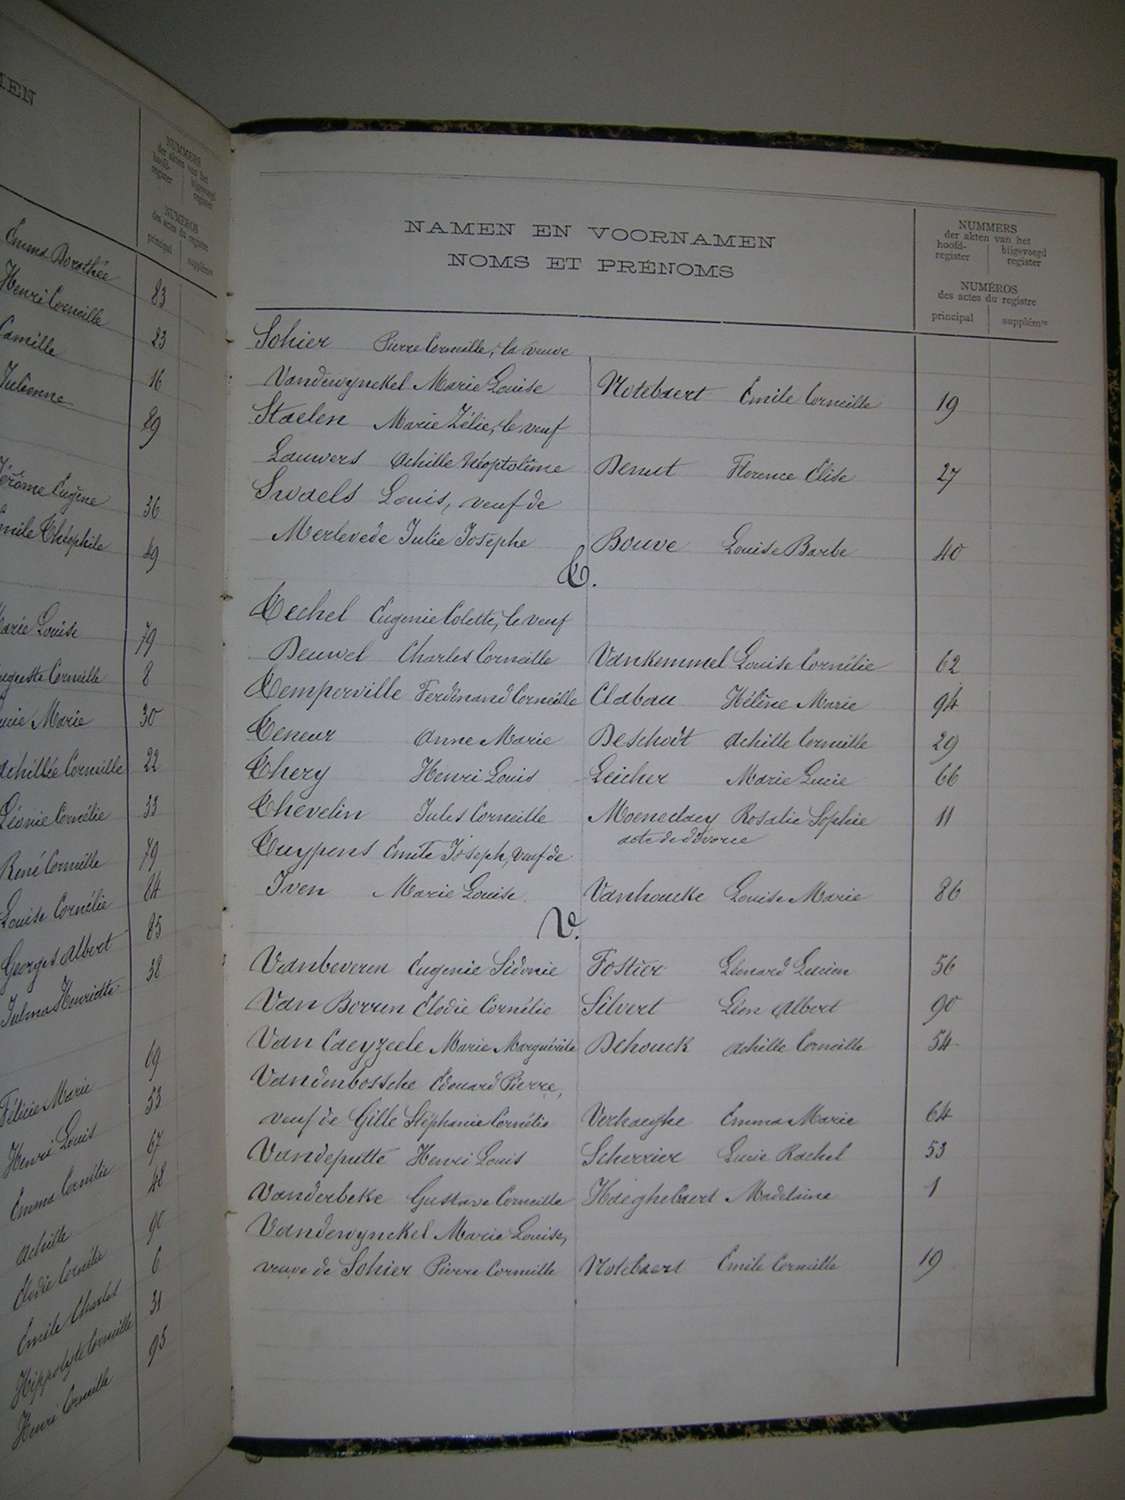 MEN
NUMMERS
der akten van het
hoofd-
register
bijgevoegd
register
NUMÉROS
des actes du registre
principal
supplémre
Emma Dorothée 83
Henri Corneille 23
Camille 16
Julienne 89
Jérôme Eugène 36
Emile Théophile 49
Marie Louise 79
Auguste Corneille 8
Lucie Marie 30
Achillée Corneille 22
Léonie Cornélie 33
René Corneille 79
Louise Cornélie 64
Georges Albert 85
Julma Henriette 38
69
Félicie Marie 53
Henri Louis 67
Emma Cornélie 48
Achille 90
Elodie Cornélie 6
Emile Charles 31
Hippolyte Corneille 95
Henri Corneille
NAMEN EN VOORNAMEN
NOMS ET PRÉNOMS
NUMMERS
der akten van het
hoofd-
register
bijgevoegd
register
NUMÉROS
des actes du registre
principal
supplémre
Sohier Pierre Corneille, la veuve
Vandewynckel Marie Louise Notebaert Emile Corneille 19
Staelen Marie Zélie, le veuf
Lauwers Achille Néoptolème Denut Florence Elise 27
Swaels Louis, veuf de
Merlevede Julie Josèphe Bouve Louise Barbe 40
T.
Techel Eugenie Colette, le veuf
Deuwel Charles Corneille Vankemmel Louise Cornélie 62
Temperville Ferdinand Corneille Clabau Hélène Marie 94
Teneur Anne Marie Deschoít Achille Corneille 29
Thery Henri Louis Leicher Marie Lucie 66
Thevelin Jules Corneille Moeneclaey Rosalie Sophie 11
acte de divorce
Tuypens Emile Joseph, veuf de
Iven Marie Louise. Vanhoucke Louise Marie 86
V.
Vanbeveren Eugenie Sidonie Fostier Léonard Lucien 56
Van Borren Elodie Cornélie Silvert Léon Albert 90
Van Caeyzeele Marie Marguérite Dehouck Achille Corneille 54
Vandenbossche Edouard Pierre,
veuf de Gille Stéphanie Cornélie Verhaeghe Emma Marie 64
Vandeputte Henri Louis Scherrier Lucie Rachel 53
Vanderbeke Gustave Corneille Haeghebaert Madelaine 1
Vandewynckel Marie Louise,
veuve de Sohier Pierre Corneille Notebaert Emile Corneille 19